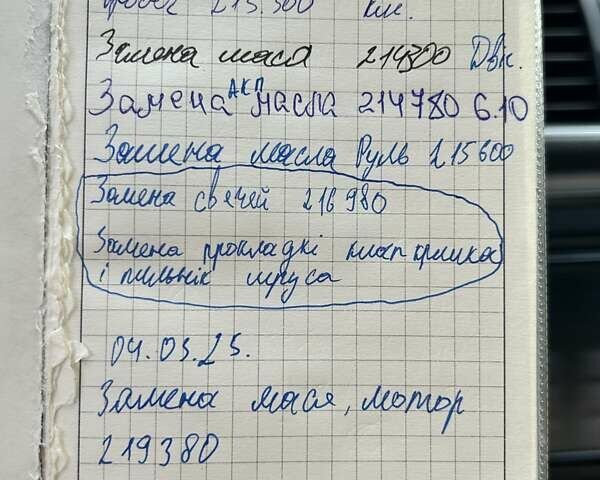 пробег 213.500 км.
Замена масла 214300 Двк.
Замена АКП масла 214780 6.10
Замена масла Руль 215600
Замена свечей 216980
Замена прокладкі клап кришка
і пильнік шруса
04.03.25.
Замена масла, мотор
219380